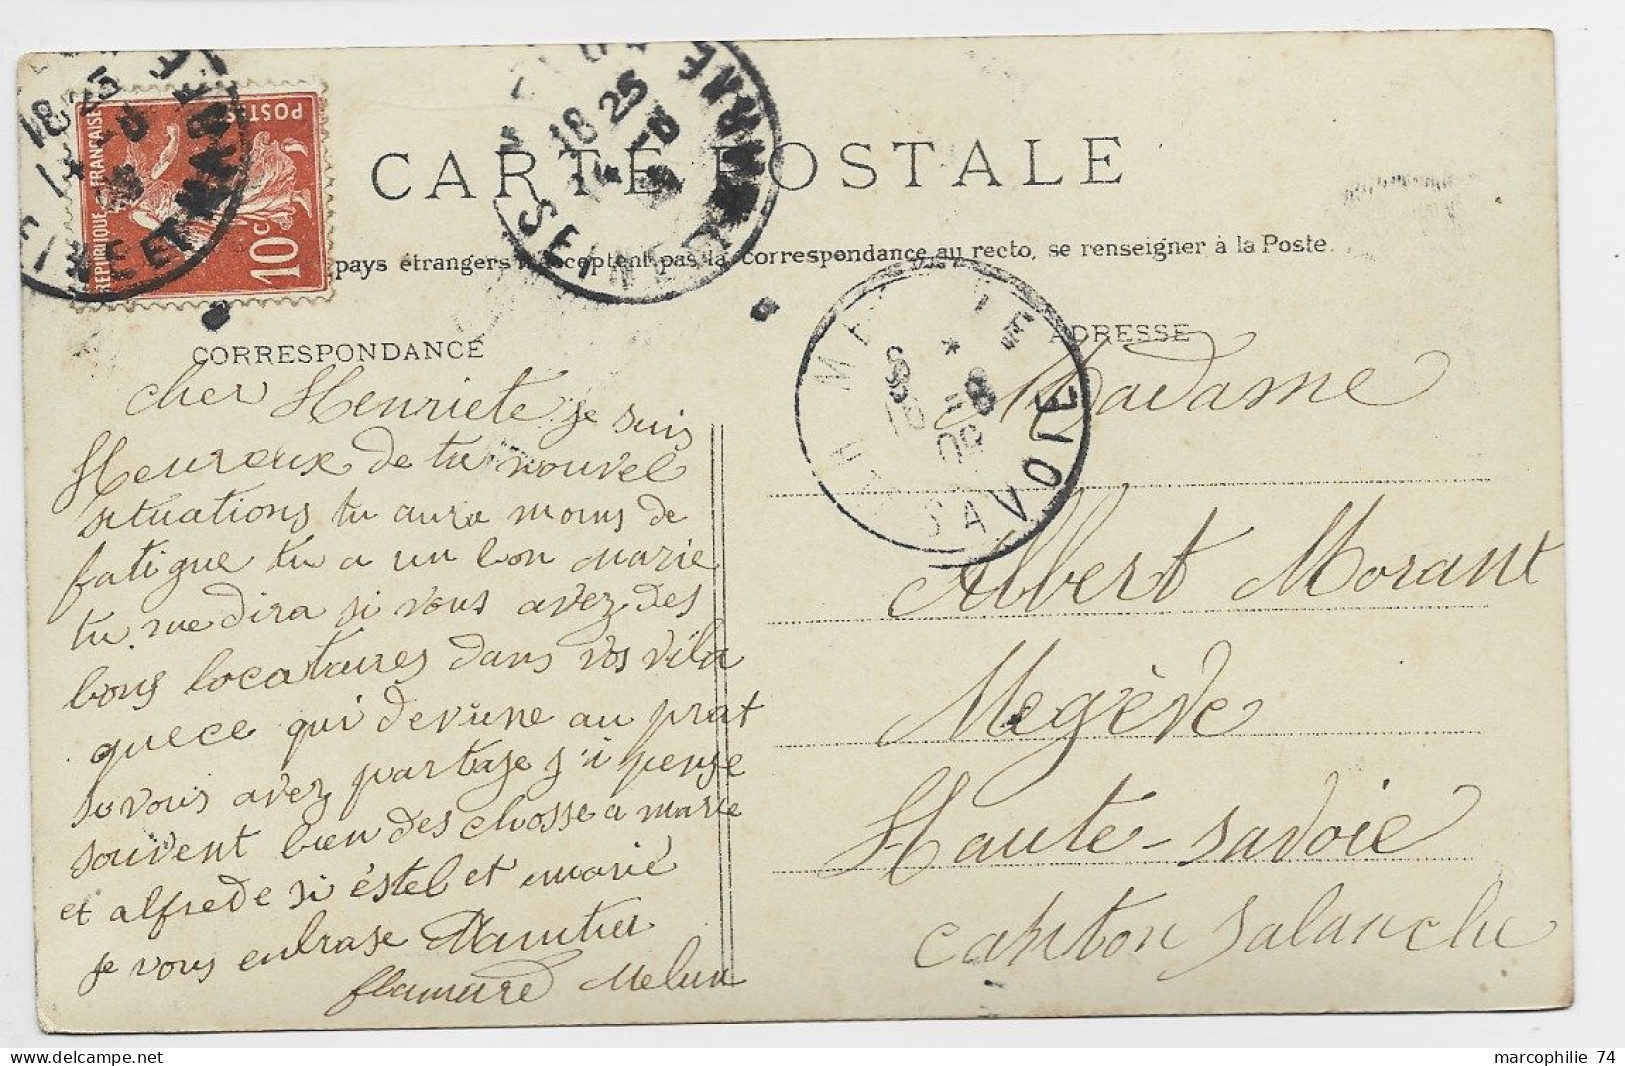 CARTE POSTALE
pays étrangers n'acceptent pas la correspondance au recto, se renseigner à la Poste.
REPUBLIQUE FRANÇAISE
POSTES
10c
18 25
SEINE ET MARNE
18 25
14 -8
SEINE ET MARNE
MEGEVE
8
09
HTE SAVOIE
CORRESPONDANCE
cher Henriete je suis
Heureux de tu nouvel
situations tu aura moins de
fatigue tu a un bon marie
tu me dira si vous avez des
bons locataires dans vos vila
quece qui devune au prat
si vous avez partaje j'i pense
souvent bien des chosse a marie
et alfrede si éstel et marie
je vous enbrase
Melun
ADRESSE
Madame
Albert Morant
Megève
Haute-savoie
canton Salanche
marcophilie 74